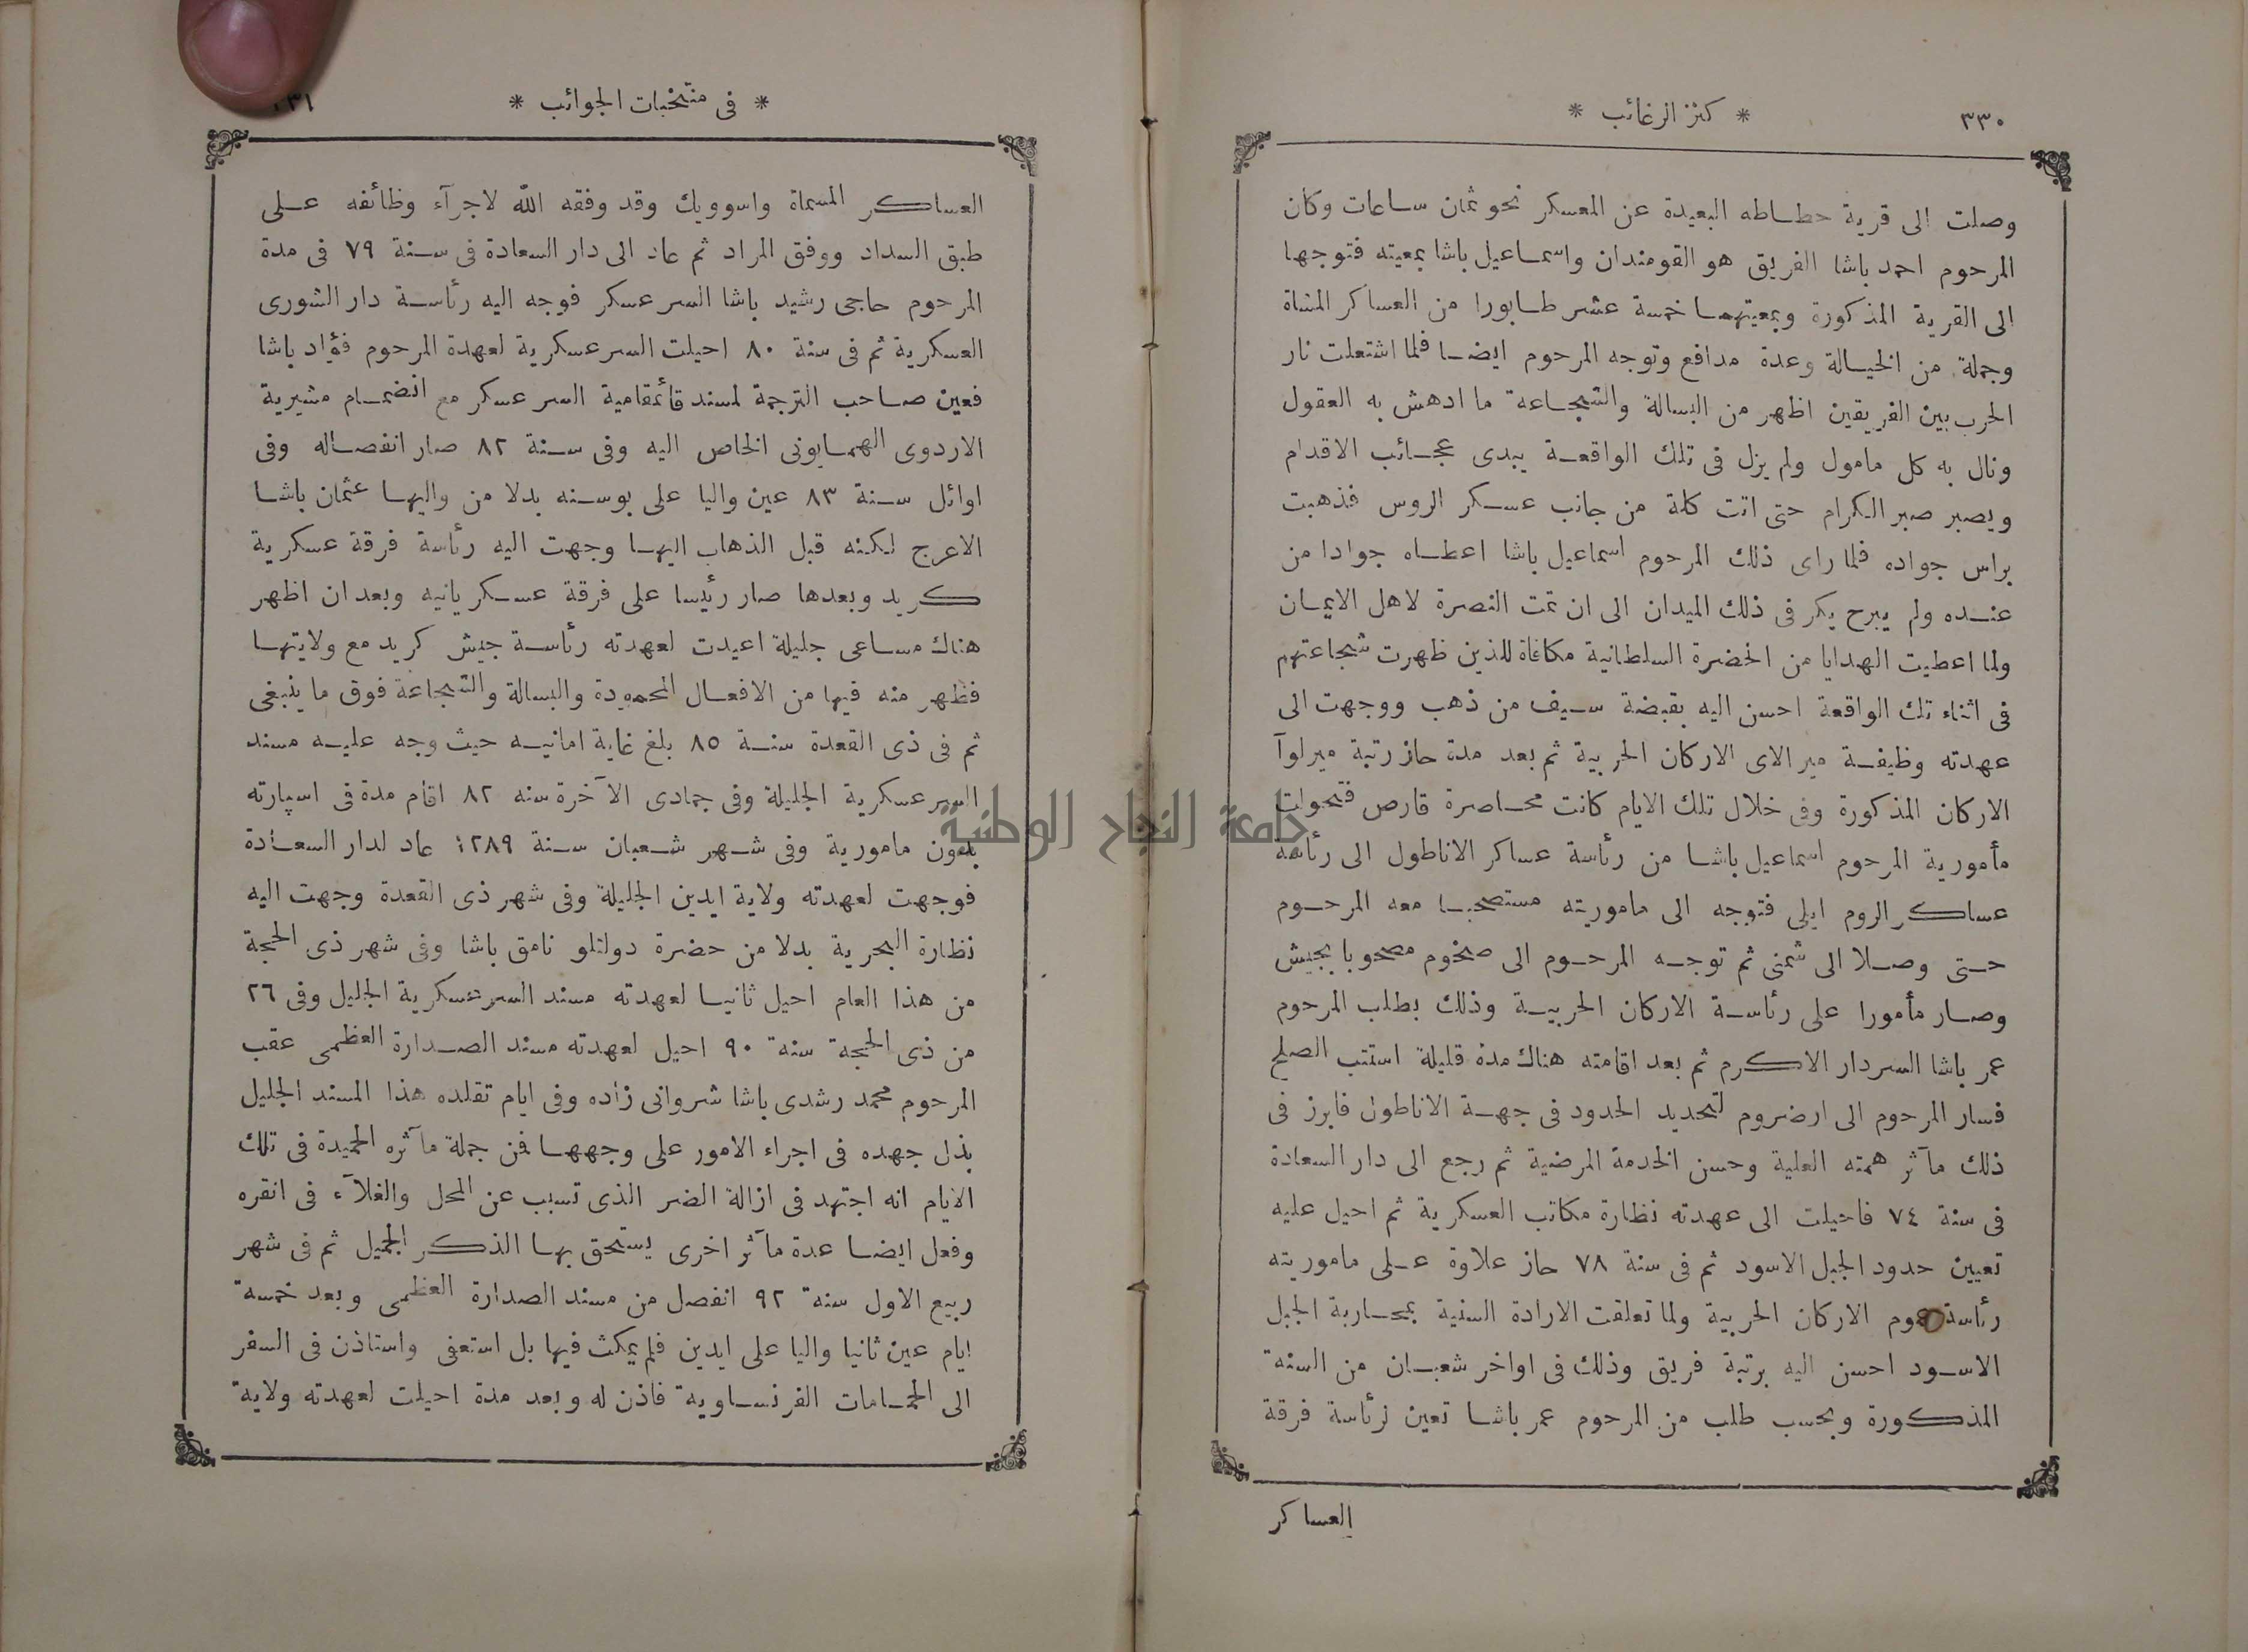 ٣٣٠
* كنز الرغائب *
وصلت الى قرية حطاطه البعيدة عن المعسكر نحو ثمان ساعات وكان
المرحوم احمد باشا الفريق هو القومندان واسماعيل باشا بمعيته فتوجها
الى القرية المذكورة وبمعيتهما خمسة عشر طابورا من العساكر المشاة
وجملة من الخيالة وعدة مدافع وتوجه المرحوم ايضا فلما اشتعلت نار
الحرب بين الفريقين اظهر من البسالة والشجاعة ما ادهش به العقول
ونال به كل مامول ولم يزل فى تلك الواقعة يبدى عجائب الاقدام
ويصبر صبر الكرام حتى اتت كلة من جانب عسكر الروس فذهبت
براس جواده فلما راى ذلك المرحوم اسماعيل باشا اعطاه جوادا من
عنده ولم يبرح يكر فى ذلك الميدان الى ان تمت النصرة لاهل الايمان
ولما اعطيت الهدايا من الحضرة السلطانية مكافاة للذين ظهرت شجاعتهم
فى اثناء تلك الواقعة احسن اليه بقبضة سيف من ذهب ووجهت الى
عهدته وظيفة مير الاى الاركان الحربية ثم بعد مدة حاز رتبة ميرلوآ
الاركان المذكورة وفى خلال تلك الايام كانت محاصرة قارص فتحولت
مأمورية المرحوم اسماعيل باشا من رئاسة عساكر الاناطول الى رئاسة
عساكر الروم ايلى فتوجه الى ماموريته مستصحبا معه المرحوم
حتى وصلا الى شمنى ثم توجه المرحوم الى صخوم مصحوبا بجيش
وصار مأمورا على رئاسة الاركان الحربية وذلك بطلب المرحوم
عمر باشا السردار الاكرم ثم بعد اقامته هناك مدة قليلة استتب الصلح
فسار المرحوم الى ارضروم لتحديد الحدود فى جهة الاناطول فابرز فى
ذلك مآثر همته العلية وحسن الخدمة المرضية ثم رجع الى دار السعادة
فى سنة ٧٤ فاحيلت الى عهدته نظارة مكاتب العسكرية ثم احيل عليه
تعيين حدود الجبل الاسود ثم فى سنة ٧٨ حاز علاوة على ماموريته
رئاسة عموم الاركان الحربية ولما تعلقت الارادة السنية بمحاربة الجبل
الاسود احسن اليه برتبة فريق وذلك فى اواخر شعبان من السنة
المذكورة وبحسب طلب من المرحوم عمر باشا تعين لرئاسة فرقة
العساكر
* فى منتخبات الجوائب *
٣١
العساكر المسماة واسوويك وقد وفقه الله لاجرآء وظائفه على
طبق السداد ووفق المراد ثم عاد الى دار السعادة فى سنة ٧٩ فى مدة
المرحوم حاجى رشيد باشا السرعسكر فوجه اليه رئاسة دار الشورى
العسكرية ثم فى سنة ٨٠ احيلت السرعسكرية لعهدة المرحوم فؤاد باشا
فعين صاحب الترجمة لمسند قائمقامية السرعسكر مع انضمام مشيرية
الاردوى الهمايونى الخاص اليه وفى سنة ٨٢ صار انفصاله وفى
اوائل سنة ٨٣ عين واليا على بوسنه بدلا من واليها عثمان باشا
الاعرج لكنه قبل الذهاب اليها وجهت اليه رئاسة فرقة عسكرية
كريد وبعدها صار رئيسا على فرقة عسكر يانيه وبعد ان اظهر
هناك مساعى جليلة اعيدت لعهدته رئاسة جيش كريد مع ولايتها
فظهر منه فيها من الافعال المحمودة والبسالة والشجاعة فوق ما ينبغى
ثم فى ذى القعدة سنة ٨٥ بلغ غاية امانيه حيث وجه عليه مسند
السرعسكرية الجليلة وفى جمادى الآخرة سنه ٨٢ اقام مدة فى اسپارته
بدون مامورية وفى شهر شعبان سنة ١٢٨٩ عاد لدار السعادة
فوجهت لعهدته ولاية ايدين الجليلة وفى شهر ذى القعدة وجهت اليه
نظارة البحرية بدلا من حضرة دولتلو نامق باشا وفى شهر ذى الحجة
من هذا العام احيل ثانيا لعهدته مسند السرعسكرية الجليل وفى ٢٦
من ذى الحجة سنة ٩٠ احيل لعهدته مسند الصدارة العظمى عقب
المرحوم محمد رشدى باشا شروانى زاده وفى ايام تقلده هذا المسند الجليل
بذل جهده فى اجراء الامور على وجهها فمن جملة مآثره الحميدة فى تلك
الايام انه اجتهد فى ازالة الضر الذى تسبب عن المحل والغلآء فى انقره
وفعل ايضا عدة مآثر اخرى يستحق بها الذكر الجميل ثم فى شهر
ربيع الاول سنة ٩٢ انفصل من مسند الصدارة العظمى وبعد خمسة
ايام عين ثانيا واليا على ايدين فلم يمكث فيها بل استعفى واستاذن فى السفر
الى الحمامات الفرنساوية فاذن له وبعد مدة احيلت لعهدته ولاية
جامعة النجاح الوطنية